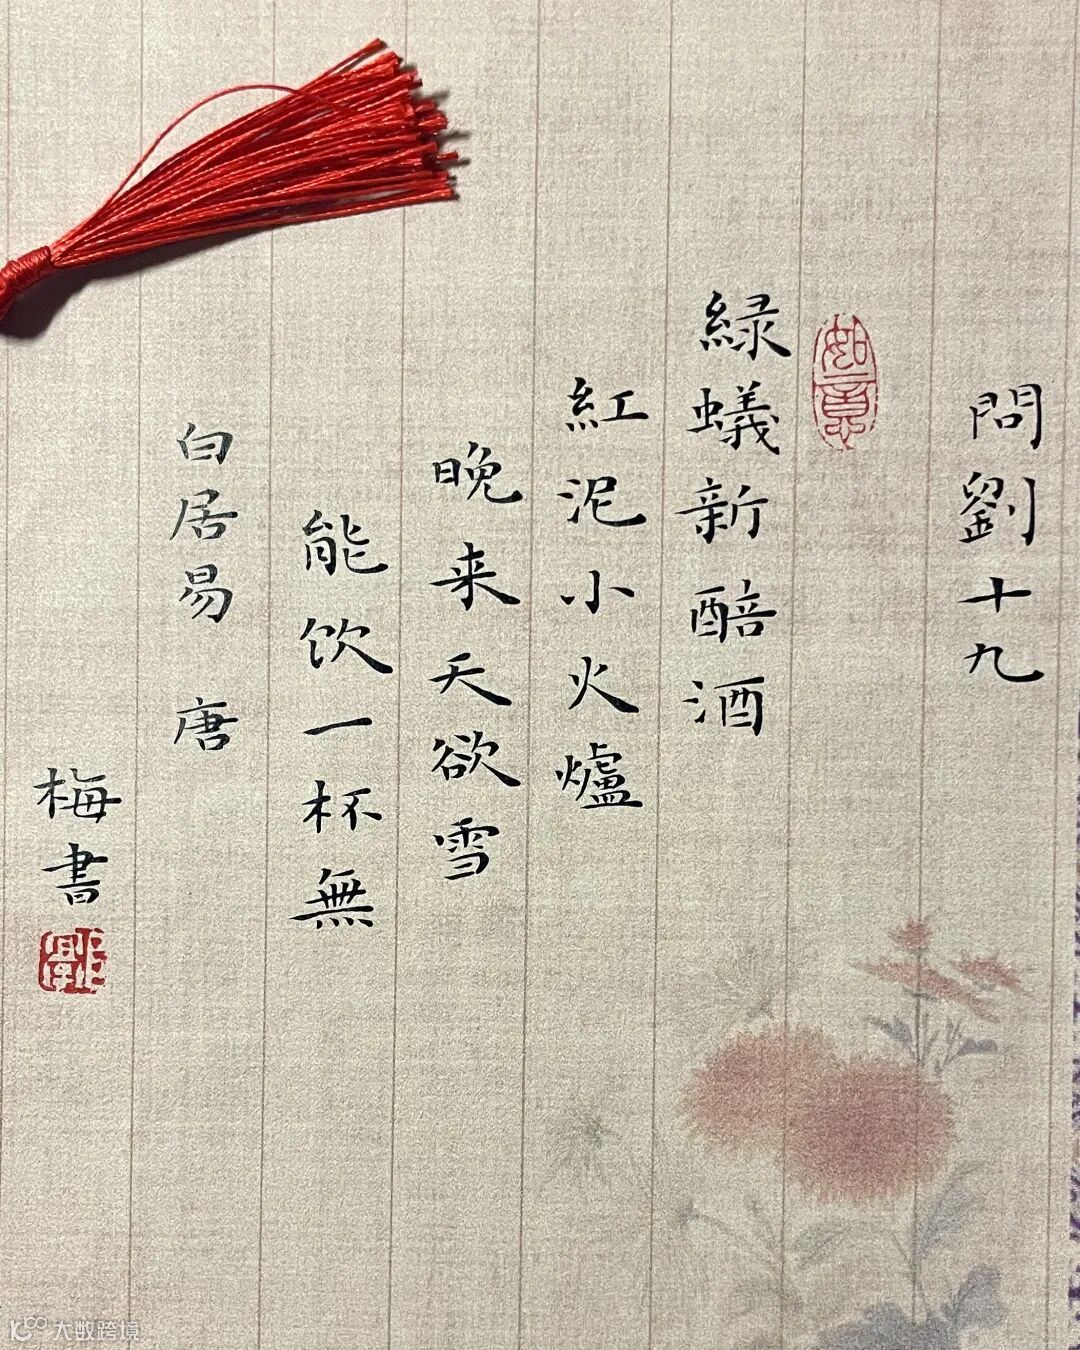 問劉十九
如意
緑蟻新醅酒
紅泥小火爐
晚来天欲雪
能饮一杯無
白居易 唐
梅書
大数跨境